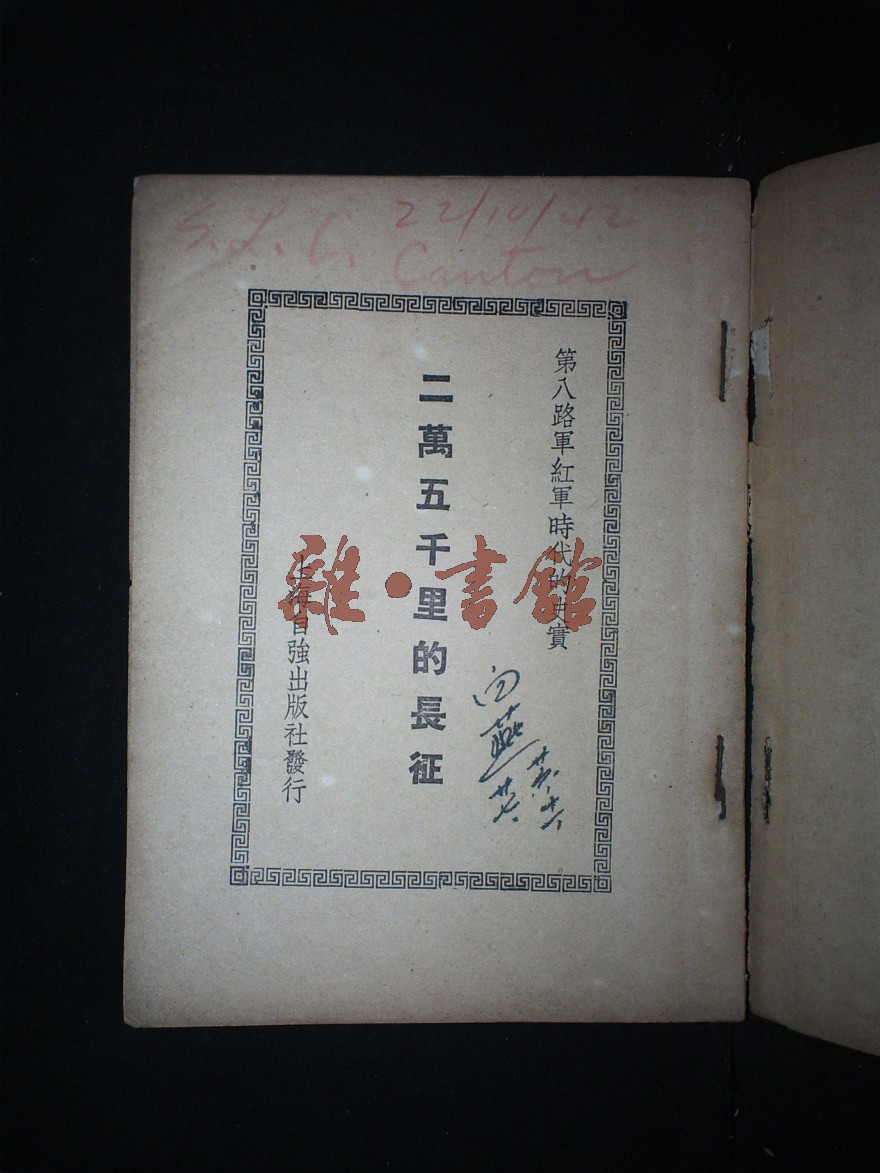 S. L. C. 22/10/42
Canton
第八路軍紅軍時代的史實
二萬五千里的長征
上海自強出版社發行
雜·書館